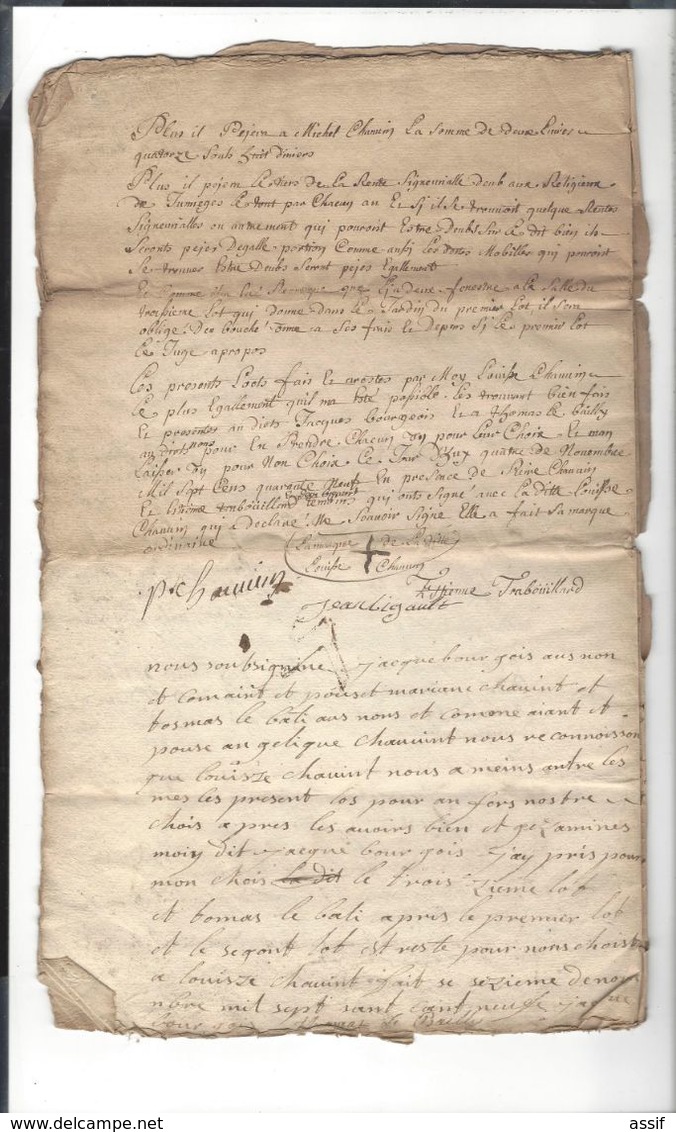 Plus il Pejera a Michel Chauvin La Somme de deux Livres
quatorze Sous huit diniers
Plus il pejera le tiers de La Rente Signeurialle deub aux Religieux
de Jumieges le tout par Chacun an Et Sj il Se trouvoit quelque Rentes
Signeurialles ou autrement qui pouroit Estre Deubt Sur Le dit bien ils
Seronts pejes Degalle portion Comme ausj Les dettes Mobilles qui pouroit
Se trouver Estre Deubs Seront pejes Egallement
Et Comme que deux fenestre a la Salle du
troisieme Lot qui donne dans Le Jardin du premier Lot il Sera
oblige Den bouché a Ses frais Et Depens Sj Le premier Lot
Le Juge apropos
Les presents Loots fais Et arestes par Moy Louisse Chauvin
Le plus Egallement quil ma Esté posible Les trouvant bien fais
Et presentes au dits Jacques bourgeois Et a Thomas Le bailly
au dits nons pour En Prendre Chacun un pour Leur Choix Et man
Laisser un pour Non Choix Ce Jour Dhuy quatre de Novembre
Mil Sept Cens quarante Neuf En presence de Chauvin
Et Estienne trabouillard temoins qui onts Signé avec La ditte Louisse
Chauvin qui a Declare Ne Scavoir Signe Elle a fait Sa marque
ordinaire
La marque + de La ditte
Louisse Chauvin
p Chauvin
Jean Ligault
Estienne Trabouillard
nous soubsignine jacque bour gois aus non
et comaint et pouset mariane chauint et
tosmas le bati aus nons et comone aiant et
pouse an gelique chauuint nous reconnoison
que louisze chauint nous a meins antre les
mes les present los pour an fors nostre
chois a pres les auoirs bien et gezamines
moiy dit jacque bour gois jay pris pour
mon chois la dit le trois zieme lot
et tomas le bati a pris le premier lot
et le segont lot est reste pour nons chois
a louisze chauint fait se sezieme de nou
nbre mil sept sant cant neufe jacque
bour gois thomas le Bailly
assif